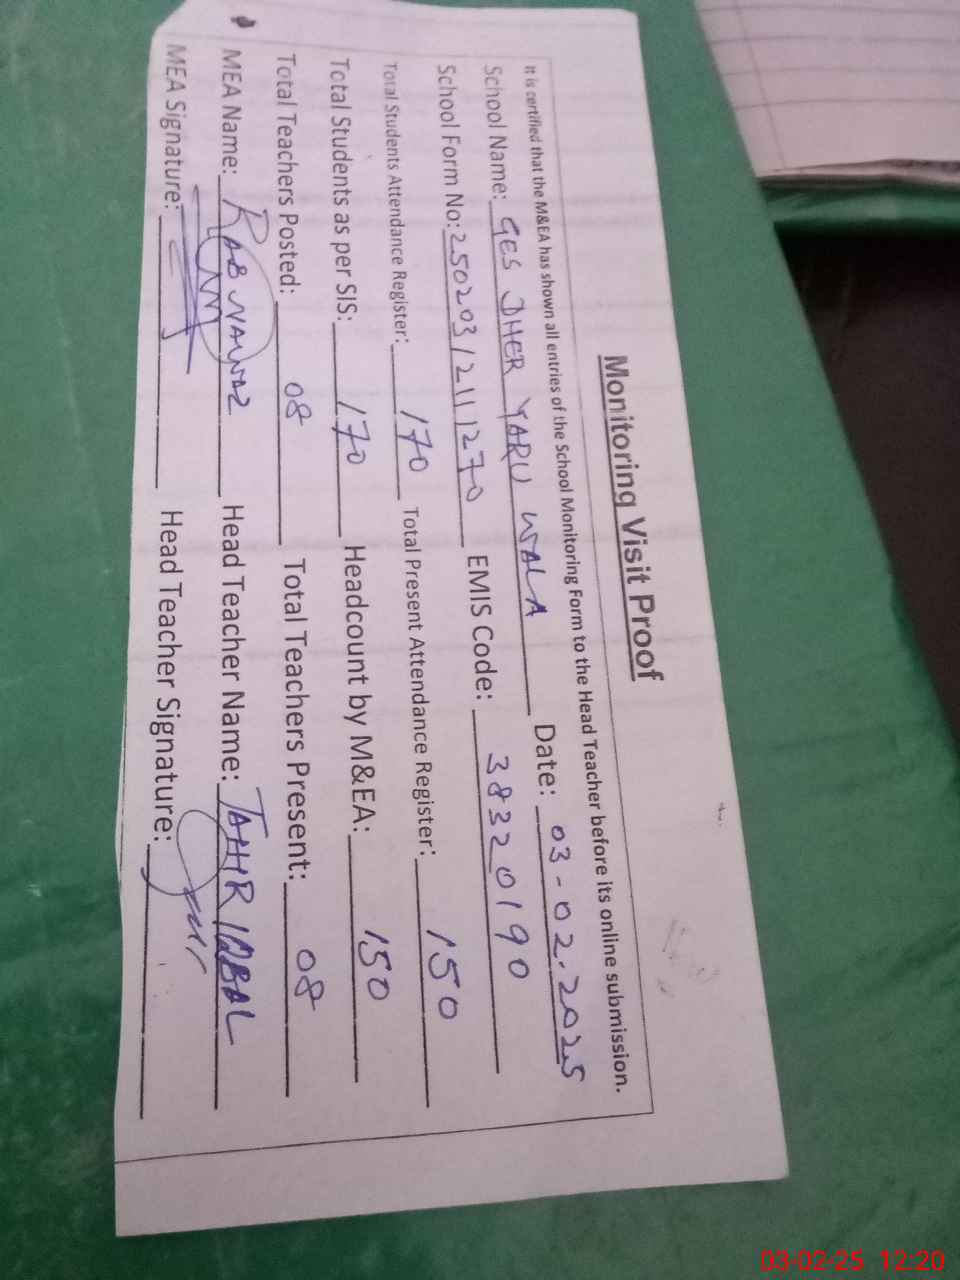 Monitoring Visit Proof
It is certified that the M&EA has shown all entries of the School Monitoring Form to the Head Teacher before its online submission.
School Name: GES DHER YARU WALA Date: 03-02-2025
School Form No: 250203/2111270 EMIS Code: 38320190
Total Students Attendance Register: 170 Total Present Attendance Register: 150
Total Students as per SIS: 170 Headcount by M&EA: 150
Total Teachers Posted: 08 Total Teachers Present: 08
MEA Name: RAB NAWAZ Head Teacher Name: TAHIR IQBAL
MEA Signature: Head Teacher Signature:
03-02-25 12:20